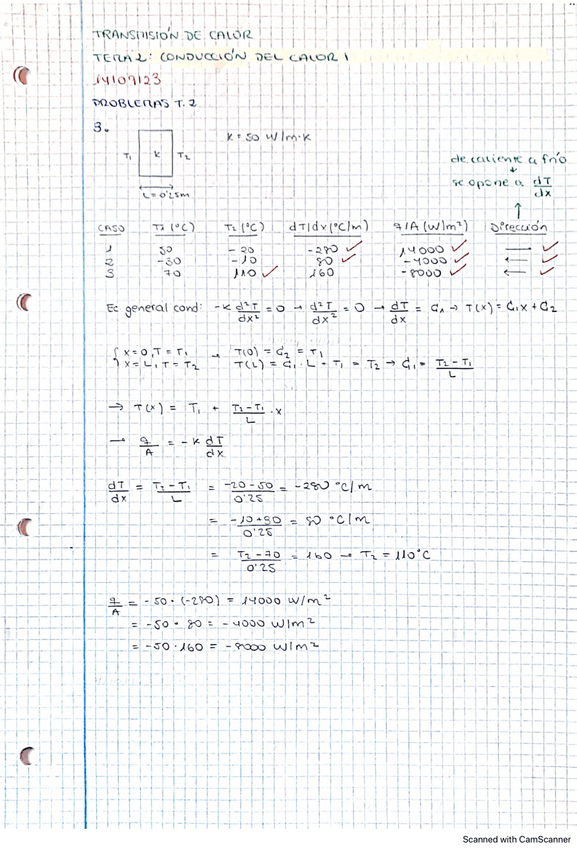 TRANSMISIÓN DE CALOR
TEMA 2: CONDUCCIÓN DEL CALOR 1
14109123
PROBLEMAS T.2
3.
K = 50 W/m·K
T₁ K T₂
L = 0'25m
de caliente a frío
se opone a dT/dx
CASO T₁ (°C) T₂ (°C) dT/dx (°C/m) q/A (W/m²) Dirección
1 50 -20 -280 ✓ 14000 ✓ → ✓
2 -30 -10 80 ✓ -4000 ✓ ← ✓
3 70 110 ✓ 160 -8000 ✓ ← ✓
Ec general cond: -K d²T/dx² = 0 → d²T/dx² = 0 → dT/dx = C₁ → T(x) = C₁x + C₂
x = 0, T = T₁ → T(0) = C₂ = T₁
x = L, T = T₂ T(L) = C₁ · L + T₁ = T₂ → C₁ = T₂-T₁/L
→ T(x) = T₁ + T₂-T₁/L · x
→ q/A = -K dT/dx
dT/dx = T₂-T₁/L = -20-50/0'25 = -280 °C/m
= -10+30/0'25 = 80 °C/m
= T₂-70/0'25 = 160 → T₂ = 110°C
q/A = -50 · (-280) = 14000 W/m²
= -50 · 80 = -4000 W/m²
= -50 · 160 = -8000 W/m²
Scanned with CamScanner